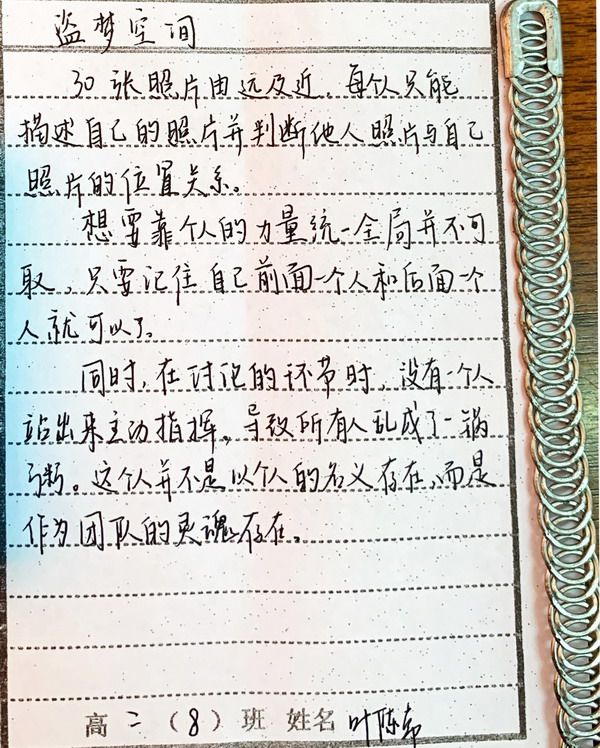 盗梦空间
30张照片由远及近,每个人只能
描述自己的照片并判断他人照片与自己
照片的位置关系。
想要靠个人的力量统一全局并不可
取,只要记住自己前面一个人和后面一个
人就可以了。
同时,在讨论的环节时,没有一个人
站出来主动指挥,导致所有人乱成了一锅
粥。这个人并不是以个人的名义存在,而是
作为团队的灵魂存在。
高二(8)班 姓名 叶陈希